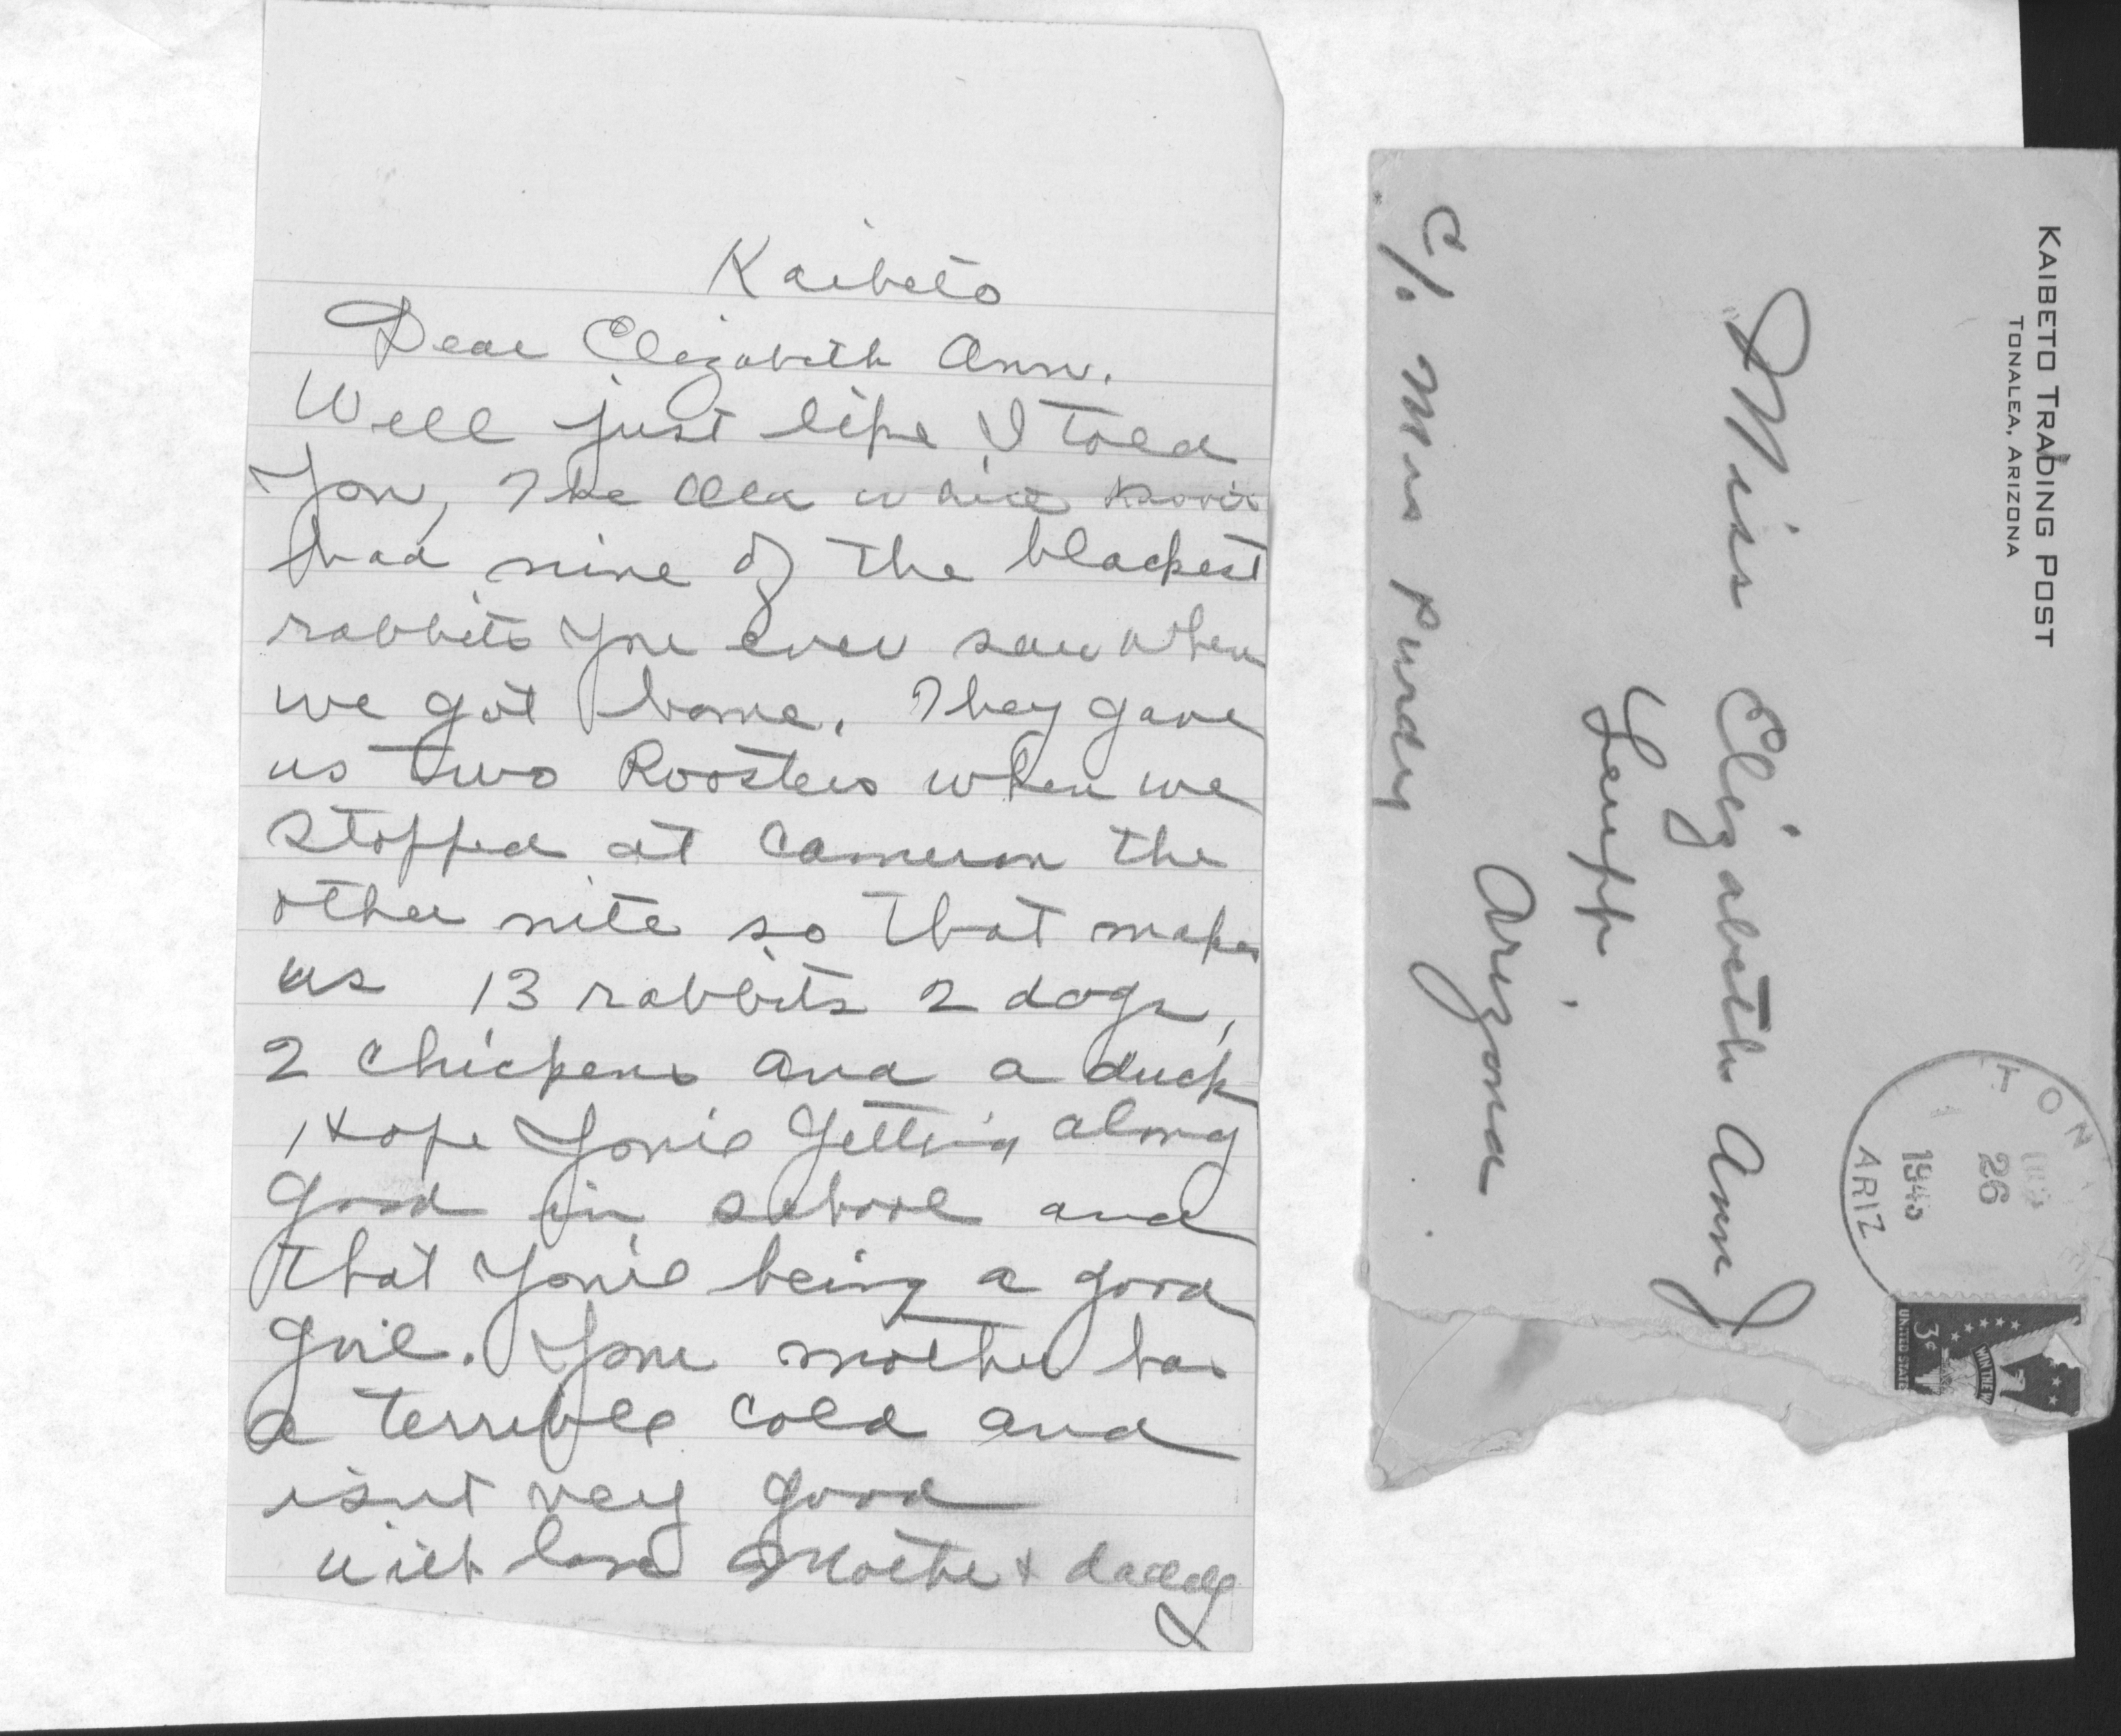 Kaibeto
Dear Elizabeth Ann.
Well just like I told
You, The old white
had nine of the blackest
rabbits you ever saw when
we got home. They gave
us two Roosters when we
stopped at Cameron the
other nite so that makes
us 13 rabbits 2 dogs,
2 chickens and a duck
Hope You're getting along
good in school and
that you're being a good
girl. Your mother has
a terrible cold and
isnt very good
with love Mother & daddy
KAIBETO TRADING POST
TONALEA, ARIZONA
Miss Elizabeth Ann J
Leupp,
Arizona
c/o Mrs Purdy
TON
26
194
ARIZ
WIN THE W
3¢
UNITED STATE